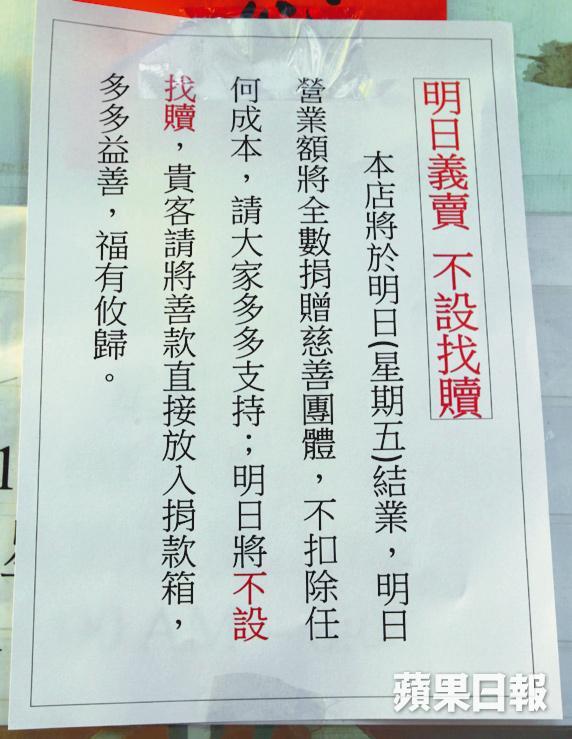 明日義賣 不設找贖
本店將於明日(星期五)結業，明日
營業額將全數捐贈慈善團體，不扣除任
何成本，請大家多多支持；明日將不設
找贖，貴客請將善款直接放入捐款箱，
多多益善，福有攸歸。
蘋果日報